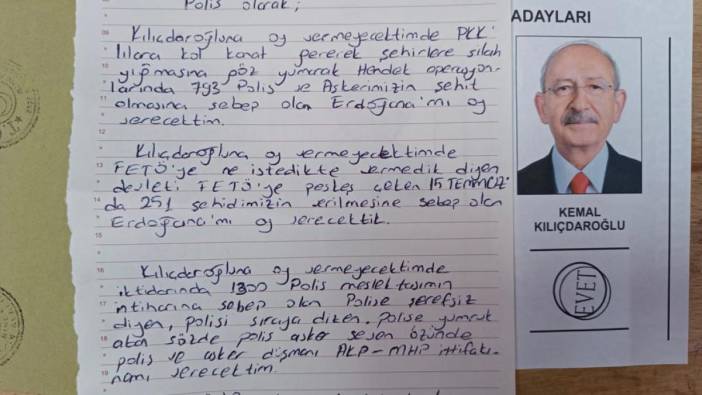 Polis olarak;
Kılıçdaroğluna oy vermeyecektimde PKK'
lılara kol kanat gererek şehirlere silah
yığmasına göz yumarak Hendek operasyon-
larında 793 Polis ve Askerimizin şehit
olmasına sebep olan Erdoğana'mı oy
verecektim.
Kılıçdaroğluna oy vermeyecektimde
FETÖ'ye ne istedikte vermedik diyen
devleti FETÖ'ye peşkeş çeken 15 TEMMUZ'
da 251 şehidimizin verilmesine sebep olan
Erdoğana'mı oy verecektik.
Kılıçdaroğluna oy vermeyecektimde
iktidarında 1300 Polis meslektaşımın
intiharına sebep olan Polise şerefsiz
diyen, polisi sıraya dizen. Polise yumruk
atan sözde polis asker seven özünde
polis ve asker düşmanı AKP-MHP ittifakı-
namı verecektim.
ADAYLARI
KEMAL
KILIÇDAROĞLU
EVET